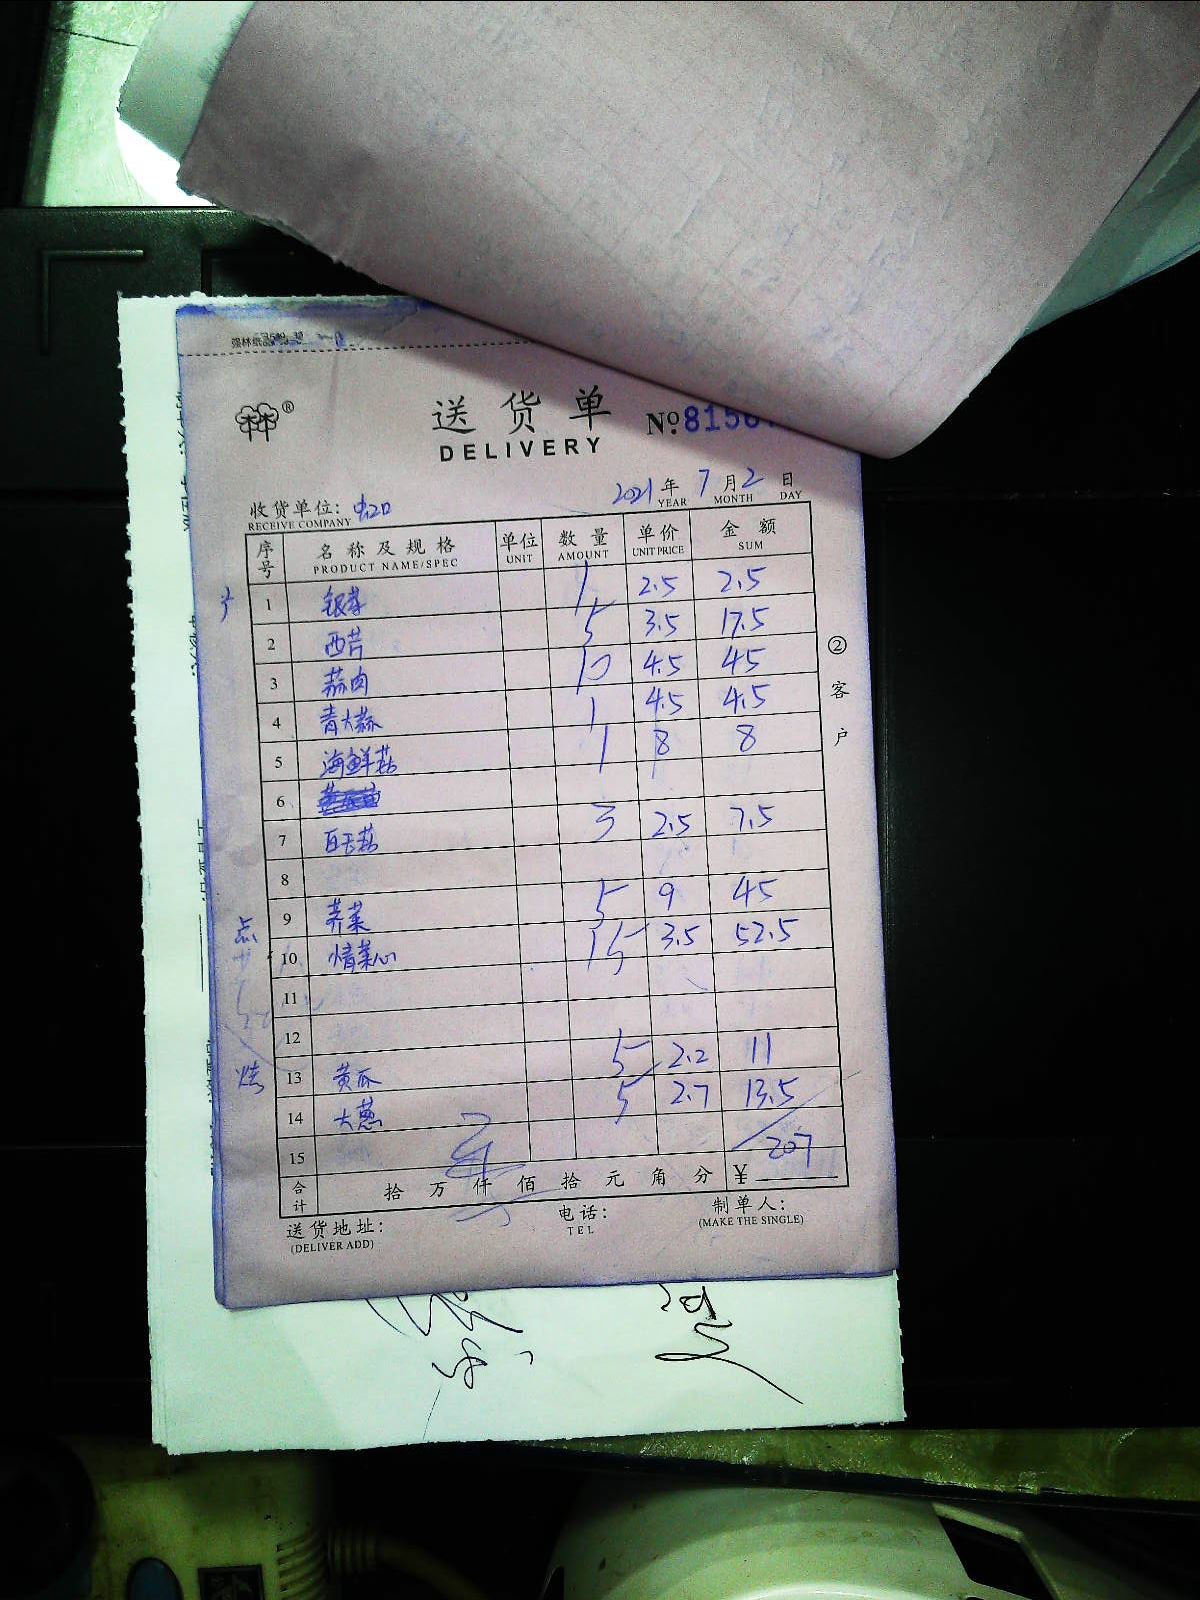 强林纸品
®
送货单
DELIVERY
№ 8156
2021 年 7 月 2 日
YEAR MONTH DAY
收货单位: 虹口
RECEIVE COMPANY
序号 名称及规格 单位 数量 单价 金额
PRODUCT NAME/SPEC UNIT AMOUNT UNIT PRICE SUM
1 银芽 1 2.5 2.5
2 西芹 5 3.5 17.5
3 蒜肉 10 4.5 45
4 青大蒜 1 4.5 4.5
5 海鲜菇 1 8 8
6
7 白玉菇 3 2.5 7.5
8
点 9 荠菜 5 9 45
10 情菜心 15 3.5 52.5
11
12
烤 13 黄瓜 5 2.2 11
14 大葱 5 2.7 13.5
15 207
合计 拾 万 仟 佰 拾 元 角 分 ¥
送货地址: 电话: 制单人:
(DELIVER ADD) TEL (MAKE THE SINGLE)
②客户